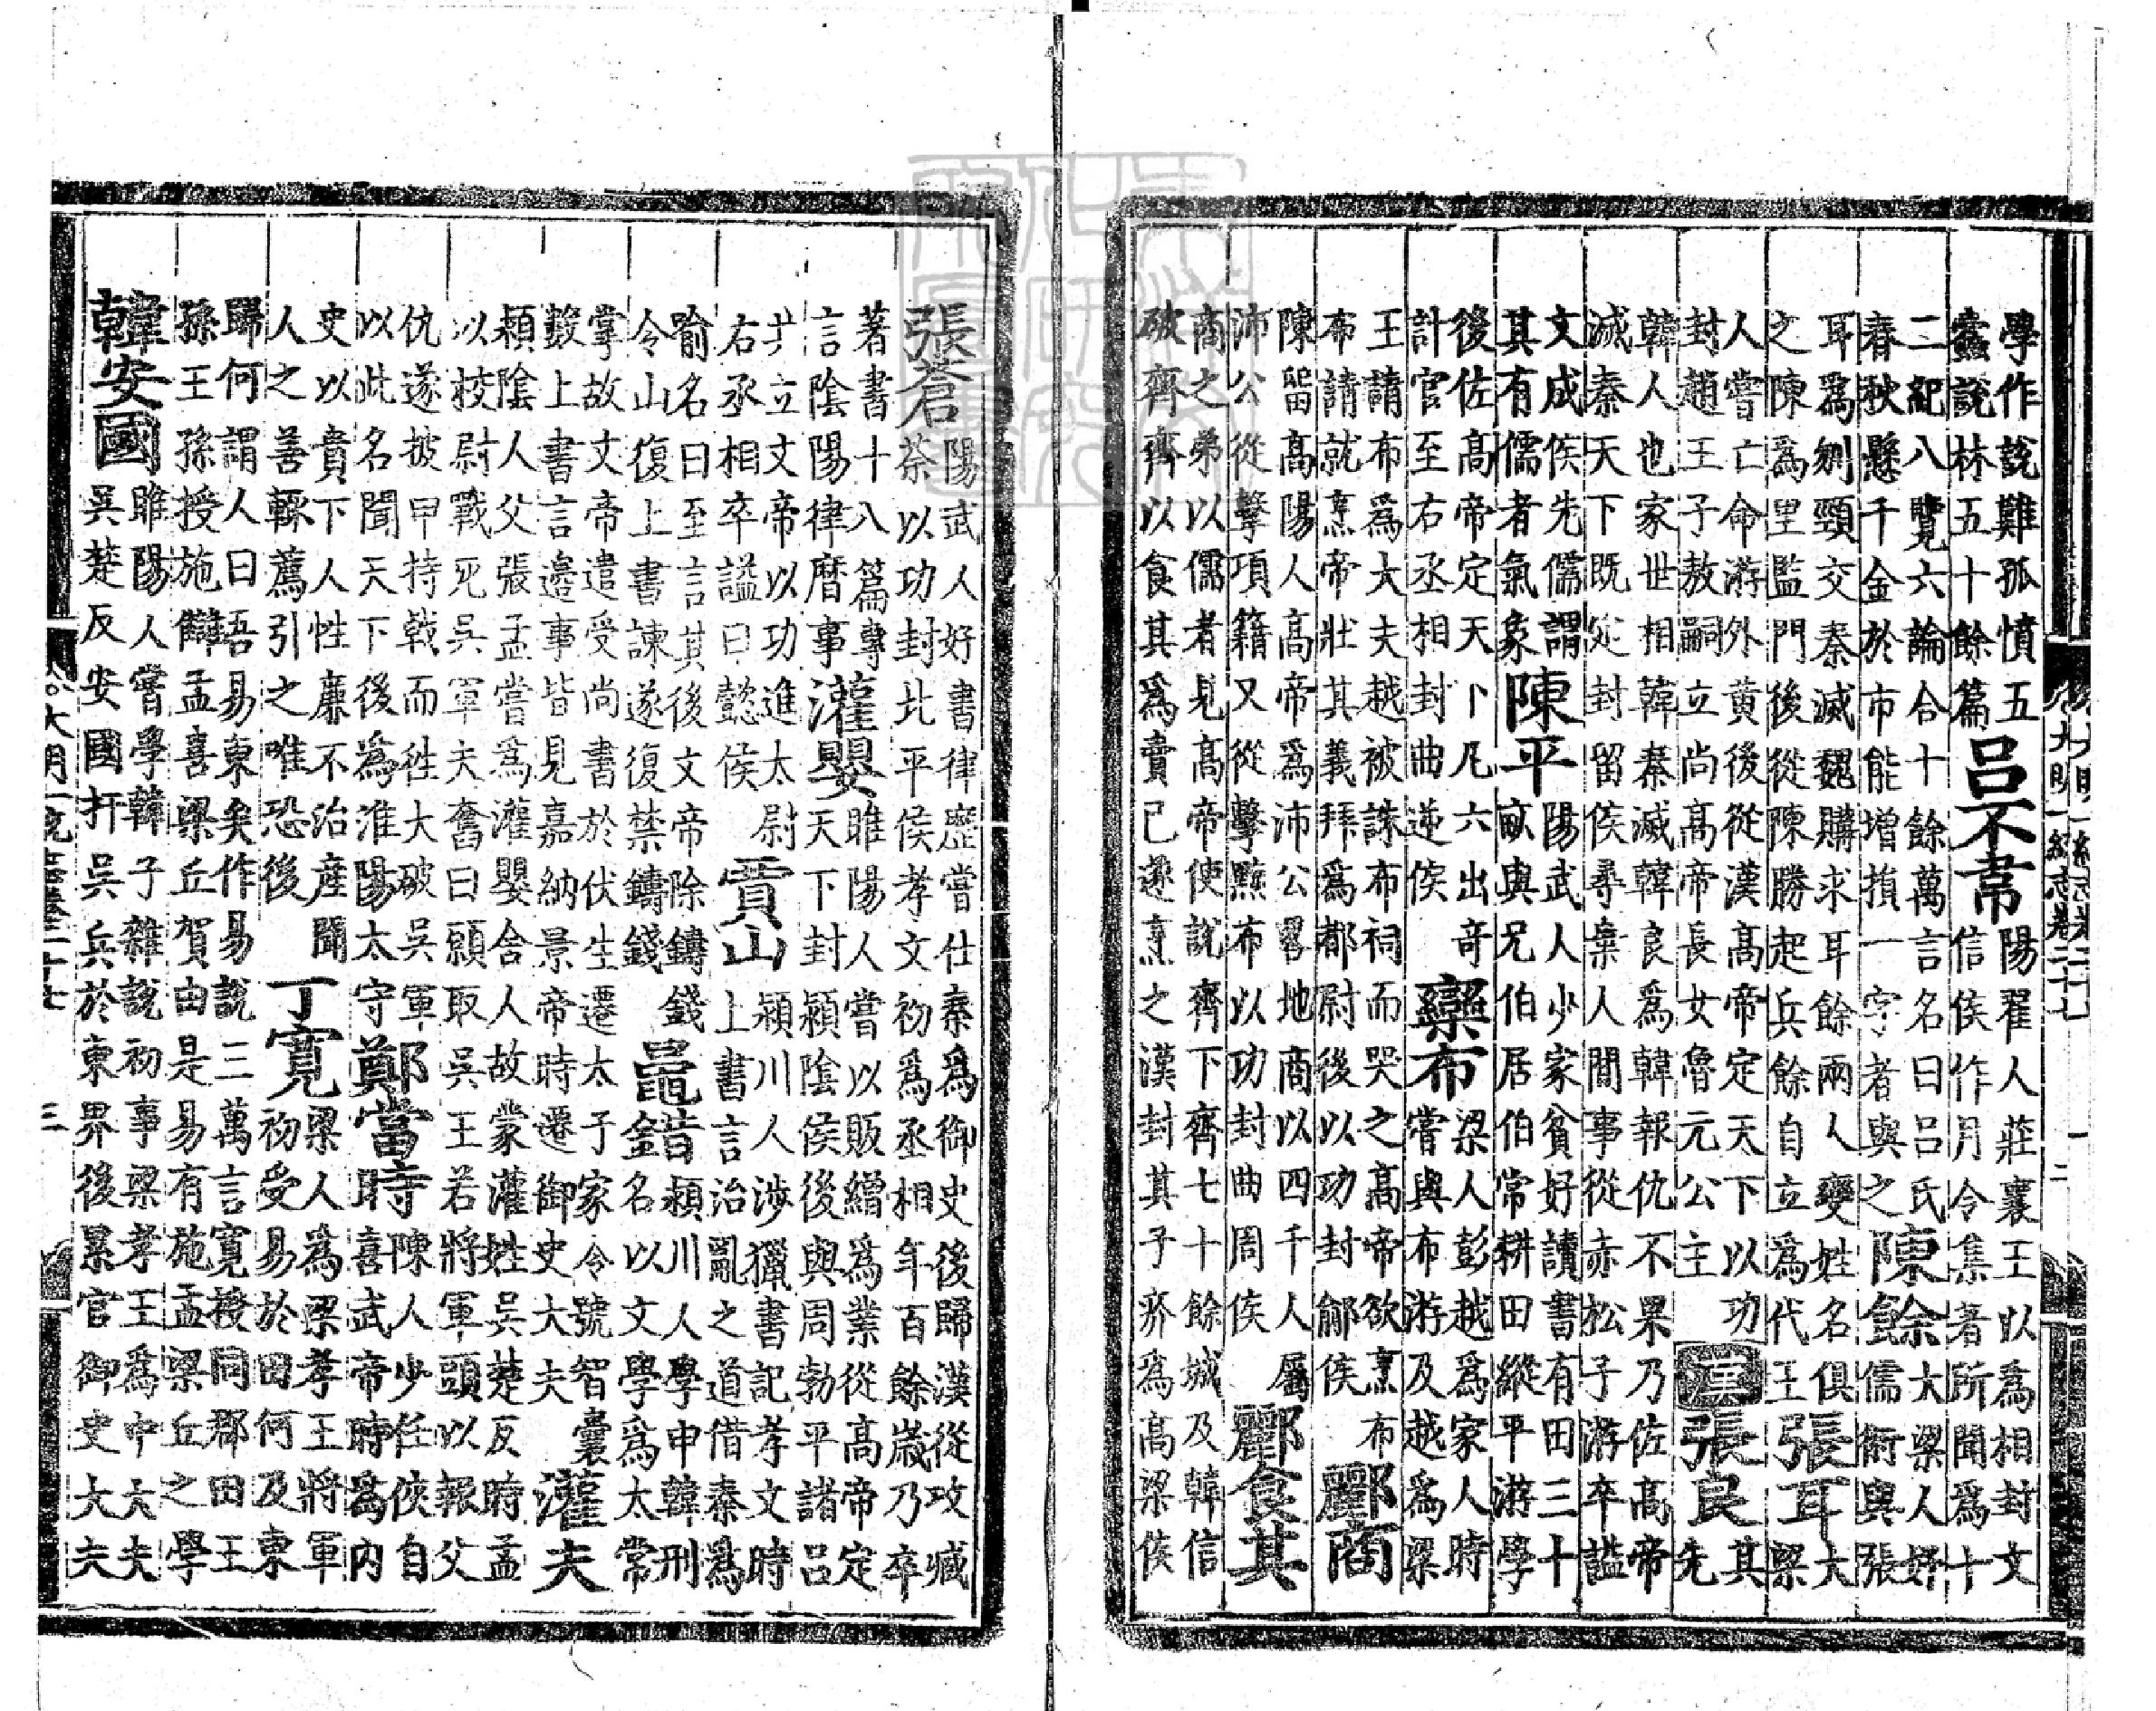 學作說難孤憤五
蠹說林五十餘篇
呂不韋
陽翟人莊襄王以爲相封文
信侯作月令集著所聞爲十
二紀八覽六論合十餘萬言名曰呂氏
春秋懸千金於市能增損一字者與之
陳餘
大梁人好
儒術與張
耳爲刎頸交秦滅魏購求耳餘兩人變姓名俱
之陳爲里監門後從陳勝起兵餘自立爲代王
張耳
大
梁
人嘗亡命游外黃後從漢高帝定天下以功
封趙王子敖嗣立尚高帝長女魯元公主
漢
張良
其
先
韓人也家世相韓秦滅韓良爲韓報仇不果乃佐高帝
滅秦天下既定封留侯尋棄人間事從赤松子游卒謚
文成侯先儒謂
其有儒者氣象
陳平
陽武人少家貧好讀書有田三十
畝與兄伯居伯常耕田縱平游學
後佐高帝定天下凡六出奇
計官至右丞相封曲逆侯
欒布
梁人彭越爲家人時
嘗與布游及越爲梁
王請布爲大夫越被誅布祠而哭之高帝欲烹布
布請就烹帝壯其義拜爲都尉後以功封鄃侯
酈商
陳留高陽人高帝爲沛公畧地商以四千人屬
沛公從擊項籍又從擊黥布以功封曲周侯
酈食其
商之弟以儒者見高帝使說齊下齊七十餘城及韓信
破齊齊以食其爲賣己遂烹之漢封其子疥爲高梁侯
大明一統志卷二十七
二
張蒼
陽武人好書律歷嘗仕秦爲御史後歸漢從攻臧
荼以功封北平侯孝文初爲丞相年百餘歲乃卒
著書十八篇專
言陰陽律曆事
灌嬰
睢陽人嘗以販繒爲業從高帝定
天下封潁陰侯後與周勃平諸呂
共立文帝以功進太尉
右丞相卒謚曰懿侯
賈山
潁川人涉獵書記孝文時
上書言治亂之道借秦爲
喻名曰至言其後文帝除鑄錢
令山復上書諫遂復禁鑄錢
鼂錯
潁川人學申韓刑
名以文學爲太常
掌故文帝遣受尚書於伏生遷太子家令號智囊
數上書言邊事皆見嘉納景帝時遷御史大夫
灌夫
潁陰人父張孟嘗爲灌嬰舍人故蒙灌姓吳楚反時孟
以校尉戰死吳軍夫奮曰願取吳王若將軍頭以報父
仇遂披甲持戟而徃大破吳軍
以此名聞天下後爲淮陽太守
鄭當時
陳人少任俠自
喜武帝時爲內
史以賁下人性廉不治產聞
人之善輒薦引之唯恐後
丁寬
梁人爲梁孝王將軍
初受易於田何及東
歸何謂人曰吾易東矣作易說三萬言寬授同郡田王
孫王孫授施讎孟喜梁丘賀由是易有施孟梁丘之學
韓安國
睢陽人嘗學韓子雜說初事梁孝王爲中大夫
吳楚反安國扞吳兵於東界後累官御史大夫
大明一統志卷二十七
三